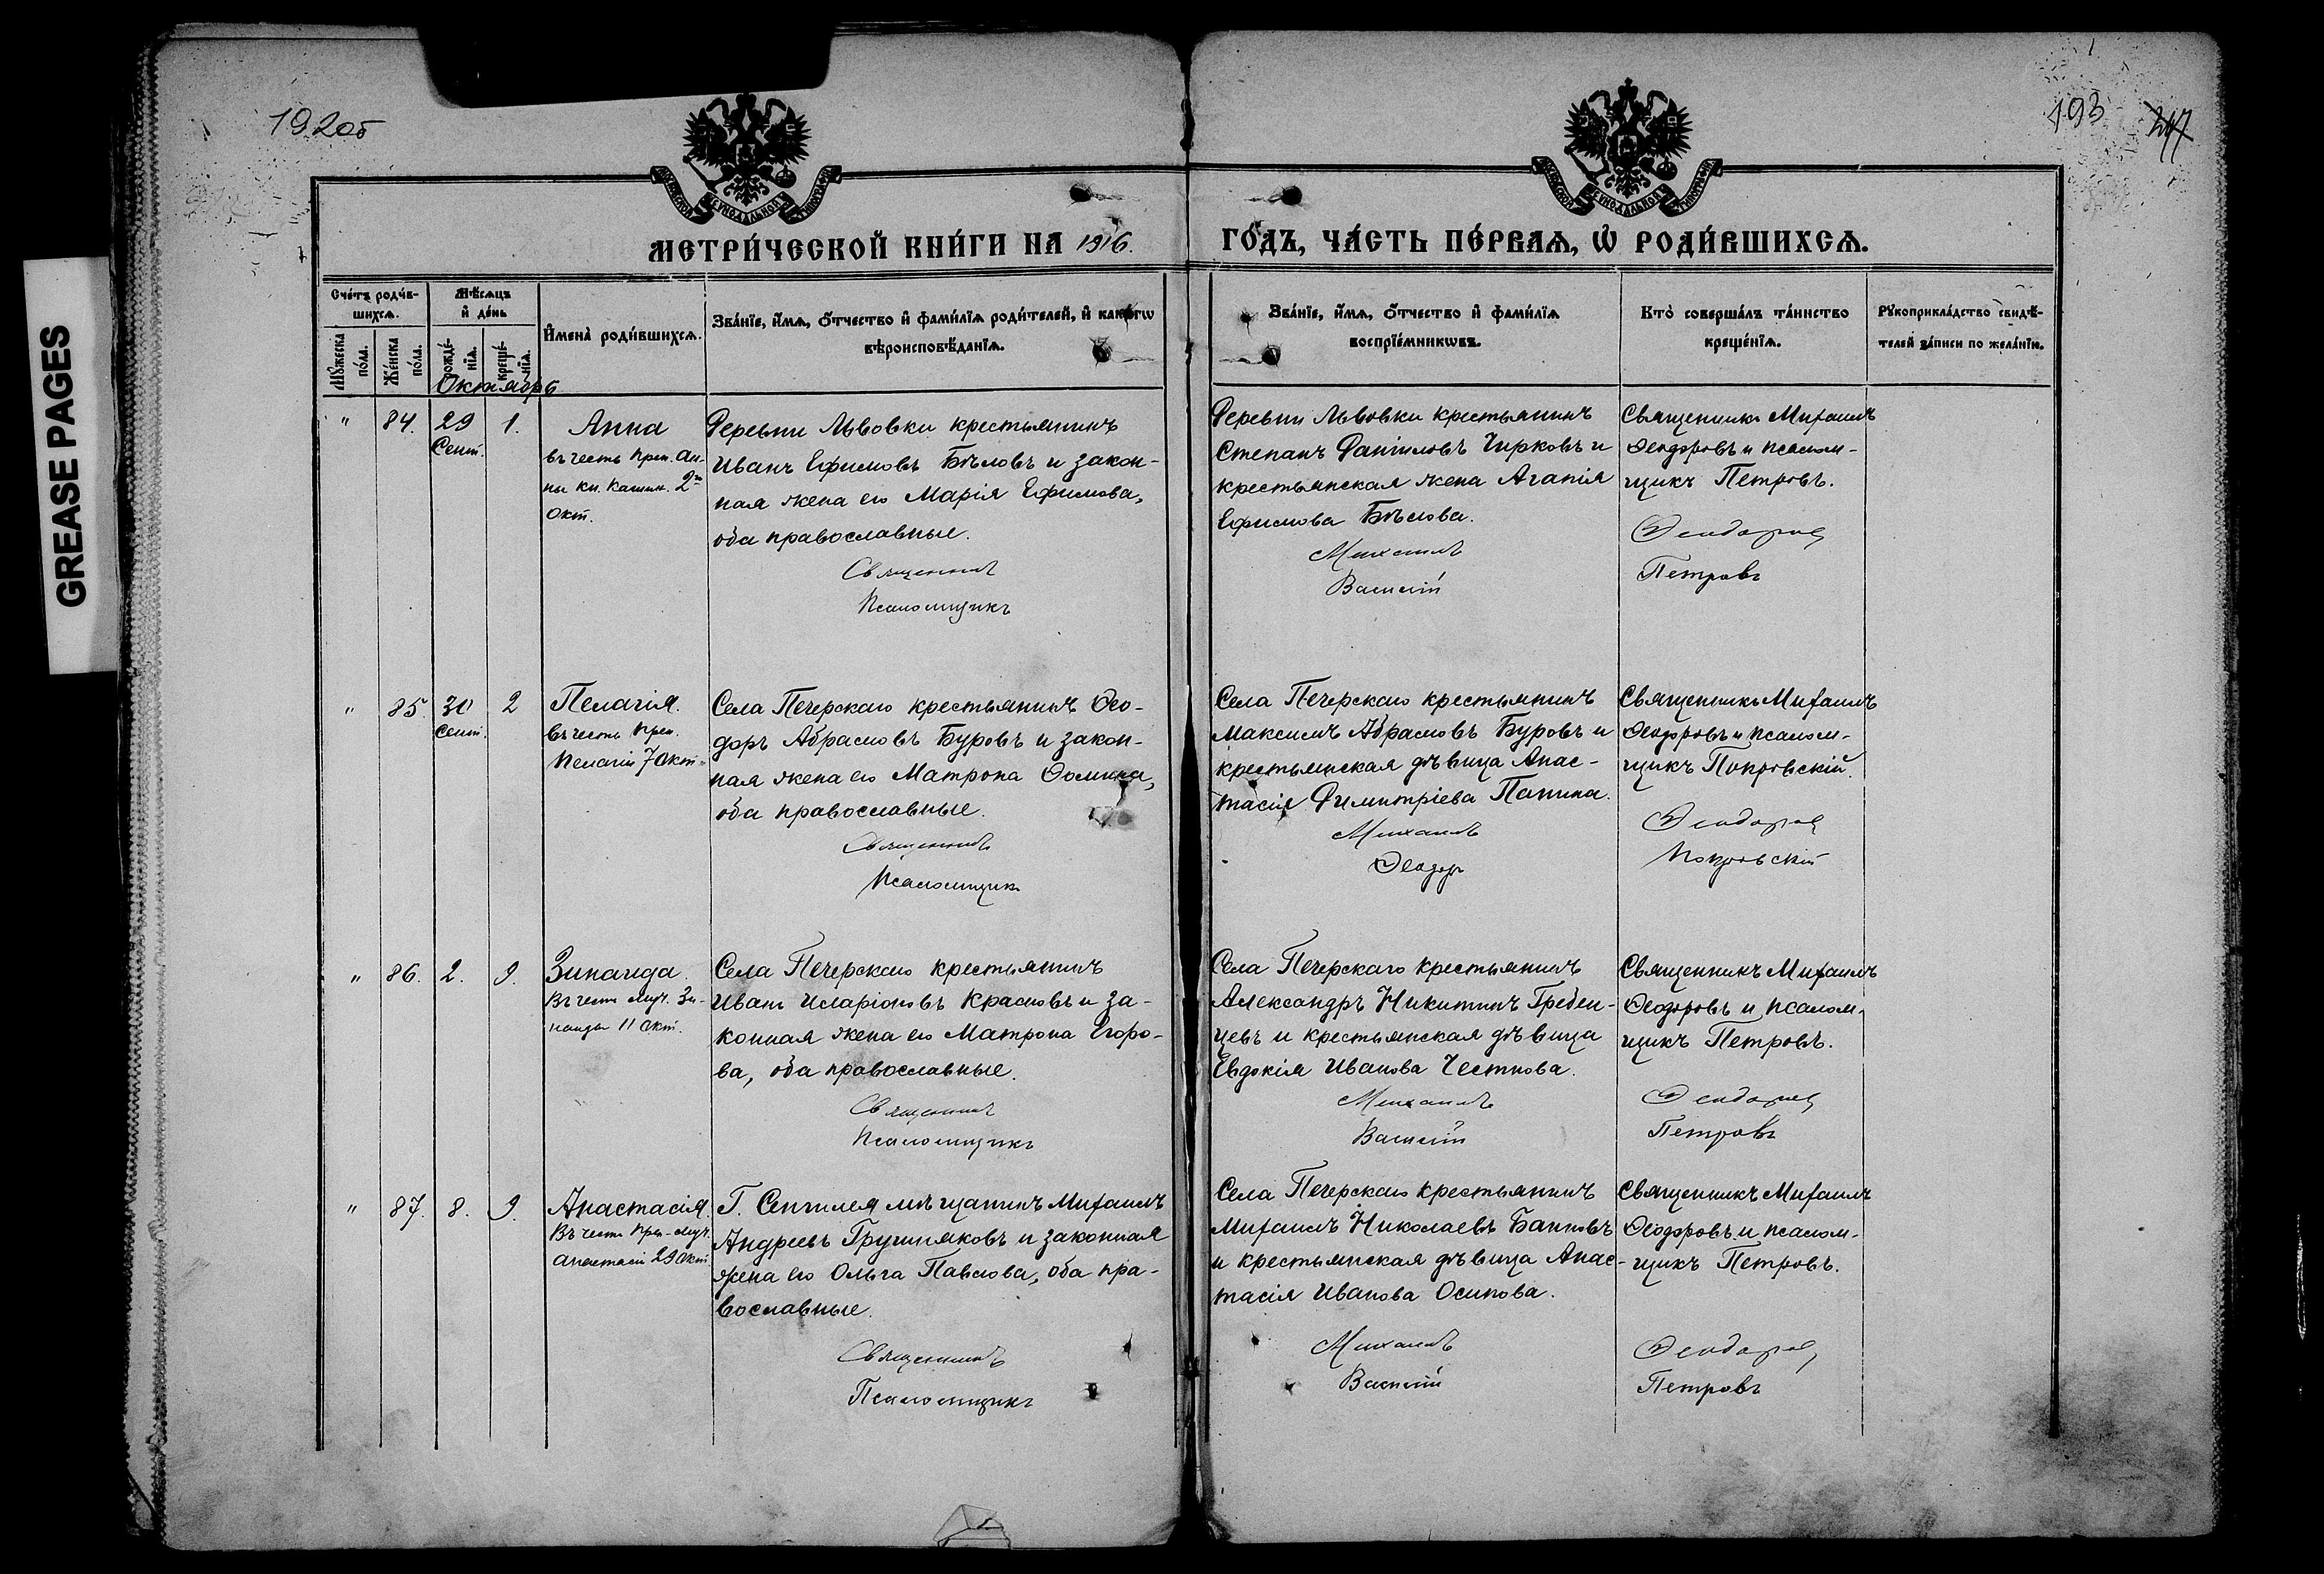 GREASE PAGES
192об
193
247
МЕТРИ́ЧЕСКОЙ КНИ́ГИ НА 1916.
ГО́ДЪ, ЧА́СТЬ ПЕ́РВАѦ, Ѡ҆ РОДИ́ВШИХСѦ.
Сче́тъ роди́в-
шихсѧ.
Мꙋ́жеска по́ла.
Же́нска по́ла.
Мѣ́сѧцъ
и҆ де́нь
рожде́-
нїѧ.
креще́-
нїѧ.
И҆мена̀ роди́вшихсѧ.
Зва́нїе, и҆́мѧ, ѻ҆́тчество и҆ фами́лїѧ роди́телей, и҆ како́гѡ
вѣроисповѣ́данїѧ.
Зва́нїе, и҆́мѧ, ѻ҆́тчество и҆ фами́лїѧ
воспрїе́мникѡвъ.
Кто̀ соверша́лъ та́инство
креще́нїѧ.
Рꙋкоприкла́дство свидѣ́-
телей за́писи по жела́нїю.
Октябрь
" 84. 29 Сент. 1.
Анна
въ честь преп. Ан-
ны кн. Кашин. 2го
Окт.
Деревни Львовки крестьянинъ
Иванъ Ефимовъ Бѣловъ и закон-
ная жена его Марія Ефимова,
оба православные.
Священникъ
Псаломщикъ
Деревни Львовки крестьянинъ
Степанъ Даніиловъ Чирковъ и
крестьянская жена Агапія
Ефимова Бѣлова.
Михаилъ
Василій
Священникъ Михаилъ
Ѳеодоровъ и псалом-
щикъ Петровъ.
Ѳеодоровъ
Петровъ
" 85. 30 Сент. 2
Пелагія.
въ честь преп.
Пелагіи 7 Окт.
Села Печерскаго крестьянинъ Ѳео-
доръ Абрамовъ Буровъ и закон-
ная жена его Матрона Ѳомина,
оба православные.
Священникъ
Псаломщикъ
Села Печерскаго крестьянинъ
Максимъ Абрамовъ Буровъ и
крестьянская дѣвица Анас-
тасія Димитріева Панина.
Михаилъ
Ѳеодоръ
Священникъ Михаилъ
Ѳеодоровъ и псалом-
щикъ Покровскій.
Ѳеодоровъ
Покровскій
" 86. 2. 9.
Зинаида.
Въ честь муч. Зи-
наиды 11 Окт.
Села Печерскаго крестьянинъ
Иванъ Иларіоновъ Красновъ и за-
конная жена его Матрона Егоро-
ва, оба православные.
Священникъ
Псаломщикъ
Села Печерскаго крестьянинъ
Александръ Никитинъ Гребен-
цевъ и крестьянская дѣвица
Евдокія Иванова Честнова.
Михаилъ
Василій
Священникъ Михаилъ
Ѳеодоровъ и псалом-
щикъ Петровъ.
Ѳеодоровъ
Петровъ
" 87. 8. 9.
Анастасія.
Въ честь Пр.-муч.
Анастасіи 29 Окт.
Г. Сенгилея мѣщанинъ Михаилъ
Андреевъ Грушняковъ и законная
жена его Ольга Павлова, оба пра-
вославные.
Священникъ
Псаломщикъ
Села Печерскаго крестьянинъ
Михаилъ Николаевъ Банновъ
и крестьянская дѣвица Анас-
тасія Иванова Осипова.
Михаилъ
Василій
Священникъ Михаилъ
Ѳеодоровъ и псалом-
щикъ Петровъ.
Ѳеодоровъ
Петровъ